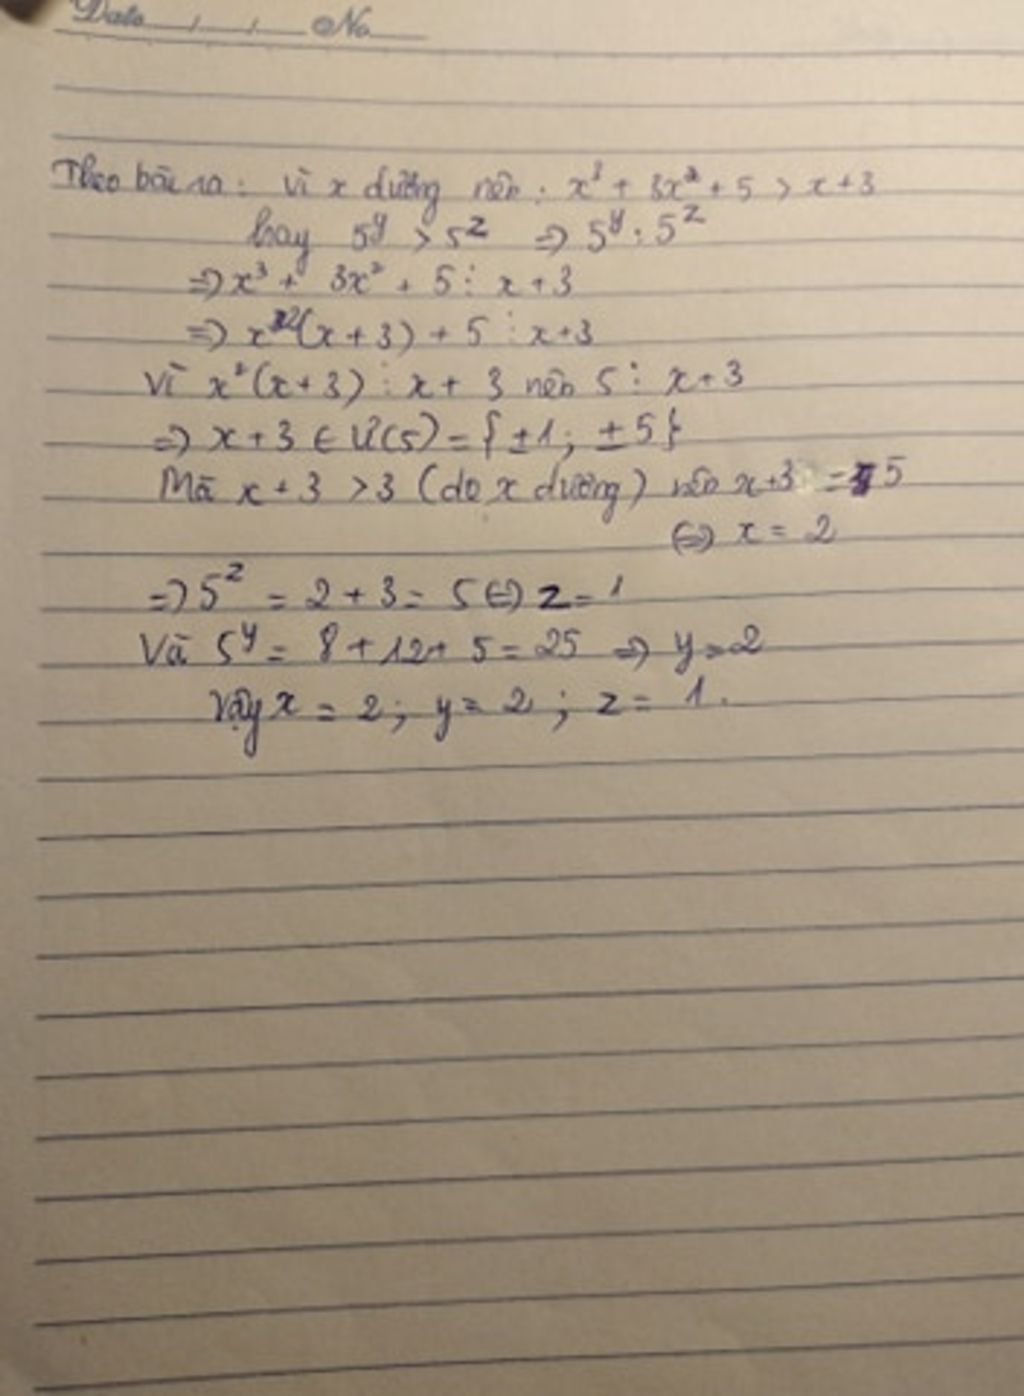 Date / / No
Theo bài ra: vì x dương nên: x³ + 3x² + 5 > x + 3
hay 5^y > 5^z => 5^y ⋮ 5^z
=> x³ + 3x² + 5 ⋮ x + 3
=> x²(x + 3) + 5 ⋮ x + 3
Vì x²(x + 3) ⋮ x + 3 nên 5 ⋮ x + 3
=> x + 3 ∈ Ư(5) = {±1; ±5}
Mà x + 3 > 3 (do x dương) nên x + 3 = 5
<=> x = 2
=> 5^z = 2 + 3 = 5 <=> z = 1
Và 5^y = 8 + 12 + 5 = 25 => y = 2
Vậy x = 2; y = 2; z = 1.